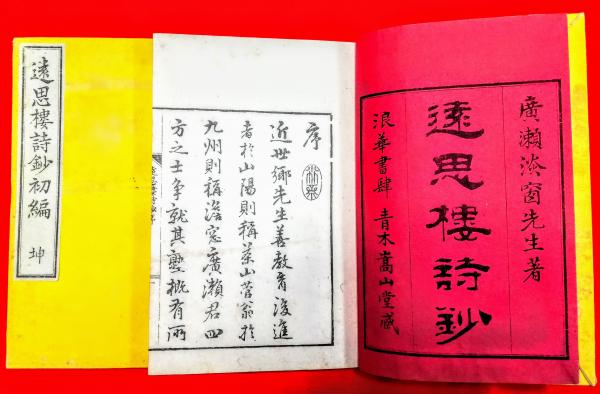 廣瀬淡窗先生著
遠思樓詩鈔
浪華書肆 青木嵩山堂藏
序
近世鄉先生善教育後進
者於山陽則稱茶山菅翁於
九州則稱淡窓廣瀬君四
方之士争就其塾概有所
遠思樓詩鈔初編 坤